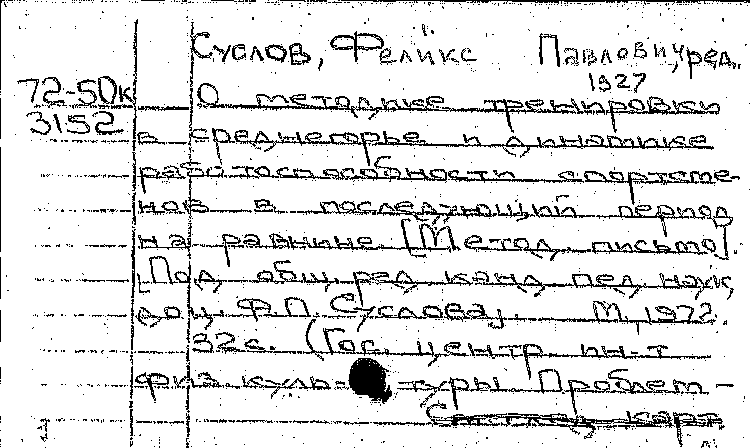 Суслов, Феликс Павлович, ред.
1927
72-50к О методике тренировки
3152 в среднегорье и динамике
работоспособности спортсме-
нов в последующий период
на равнине. [Метод. письмо].
[Под общ. ред. канд. пед. наук,
доц. Ф.П. Суслова]. М., 1972.
32 с. (Гос. центр. ин-т
физ. куль- туры. Проблем-